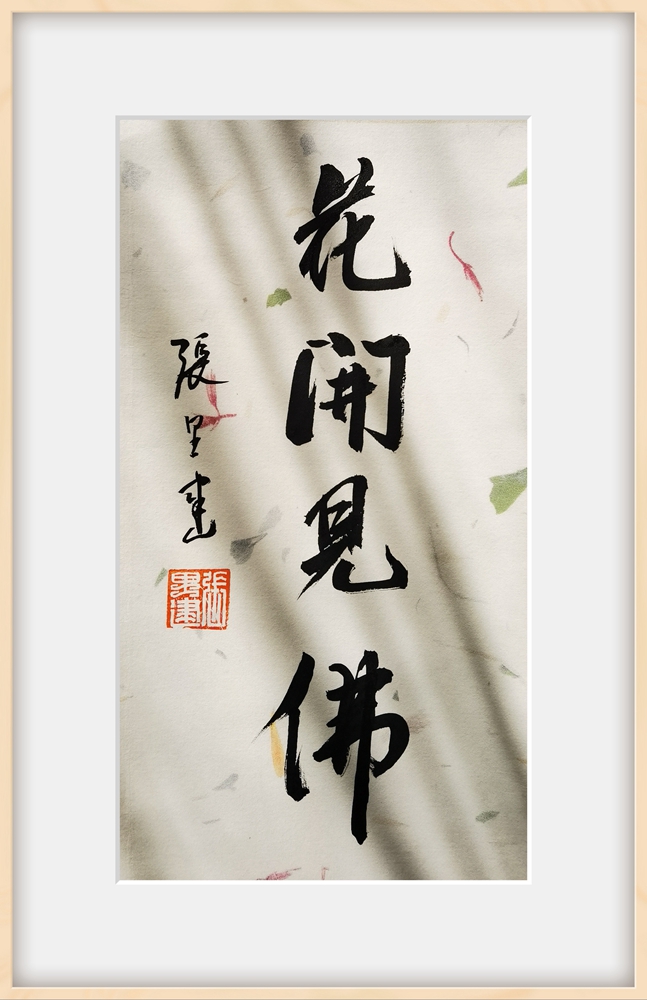 花開見佛
張里建
張里建